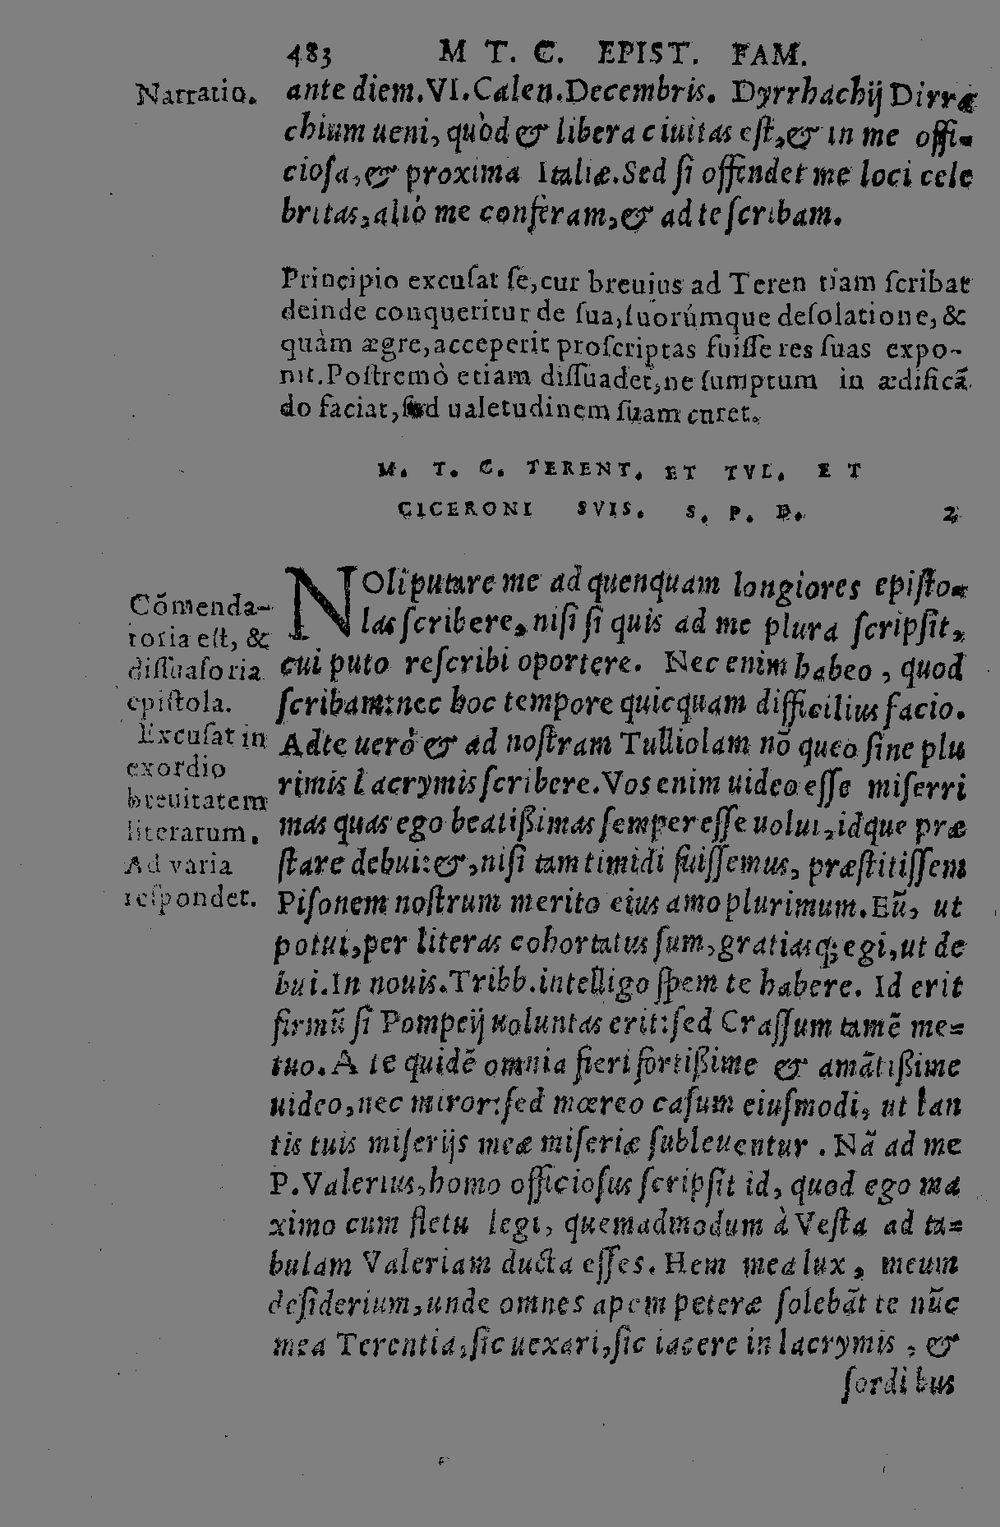 483 M T. C. EPIST. FAM.
Narratio.
ante diem.VI.Calen.Decembris. Dyrrhachij Dirræ
chium ueni, quòd & libera ciuitas eſt,& in me offi-
cioſa,& proxima Italiæ.Sed ſi offendet me loci cele
britas,aliò me conferam,& ad te ſcribam.
Principio excuſat ſe,cur breuius ad Teren tiam ſcribat
deinde conqueritur de ſua,ſuorúmque deſolatione, &
quàm ægre,acceperit proſcriptas fuiſſe res ſuas expo-
nit.Poſtremò etiam diſſuadet,ne ſumptum in ædificā
do faciat,ſed ualetudinem ſuam curet.
M. T. C. TERENT. ET TVL. ET
CICERONI SVIS. S. P. D. 2
Cōmenda-
toria eſt, &
diſſuaſoria
epiſtola.
Excuſat in
exordio
breuitatem
literarum.
Ad varia
reſpondet.
NOli putare me ad quenquam longiores epiſto-
las ſcribere, niſi ſi quis ad me plura ſcripſit,
cui puto reſcribi oportere. Nec enim habeo , quod
ſcribam:nec hoc tempore quicquam difficilius facio.
Ad te uerò & ad noſtram Tulliolam nō queo ſine plu
rimis lacrymis ſcribere.Vos enim uideo eſſe miſerri
mas quas ego beatißimas ſemper eſſe uolui,idque præ
ſtare debui:&,niſi tam timidi fuiſſemus, præſtitiſſem
Piſonem noſtrum merito eius amo plurimum.Eū, ut
potui,per literas cohortatus ſum,gratiasq; egi,ut de
bui.In nouis.Tribb.intelligo ſpem te habere. Id erit
firmū ſi Pompeij uoluntas erit:ſed Craſſum tamē me-
tuo.A te quidē omnia fieri fortißime & amātißime
uideo,nec miror:ſed mœreo caſum eiuſmodi, ut tan
tis tuis miſerijs meæ miſeriæ ſubleuentur . Nā ad me
P.Valerius,homo officioſus ſcripſit id, quod ego ma
ximo cum fletu legi, quemadmodum à Veſta ad ta-
bulam Valeriam ducta eſſes. Hem mea lux , meum
deſiderium,unde omnes apem peteræ ſolebāt te nūc
mea Terentia,ſic uexari,ſic iacere in lacrymis , &
ſordibus